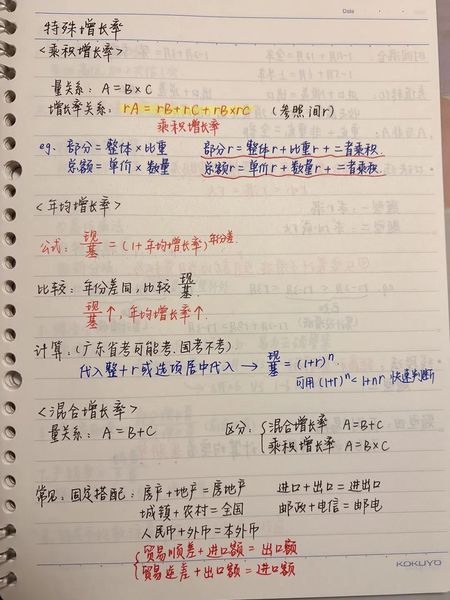 Date
特殊增长率
<乘积增长率>
量关系: A=B×C
增长率关系: rA=rB+rC+rB×rC (参照间r)
乘积增长率
eg. 部分=整体×比重 部分r=整体r+比重r+二者乘积.
总额=单价×数量 总额r=单价r+数量r+二者乘积.
<年均增长率>
公式: 现/基=(1+年均增长率)^年份差.
比较: 年份差同, 比较 现/基.
现/基↑, 年均增长率↑.
计算: (广东省考可能考, 国考不考)
代入整+r或选项居中代入 → 现/基=(1+r)^n
可用(1+r)^n<1+nr 快速判断
<混合增长率>
量关系: A=B+C 区分: {混合增长率 A=B+C
乘积增长率 A=B×C
常见: 固定搭配: 房产+地产=房地产 进口+出口=进出口
城镇+农村=全国 邮政+电信=邮电
人民币+外币=本外币
{贸易顺差+进口额=出口额
贸易逆差+出口额=进口额
KOKUYO